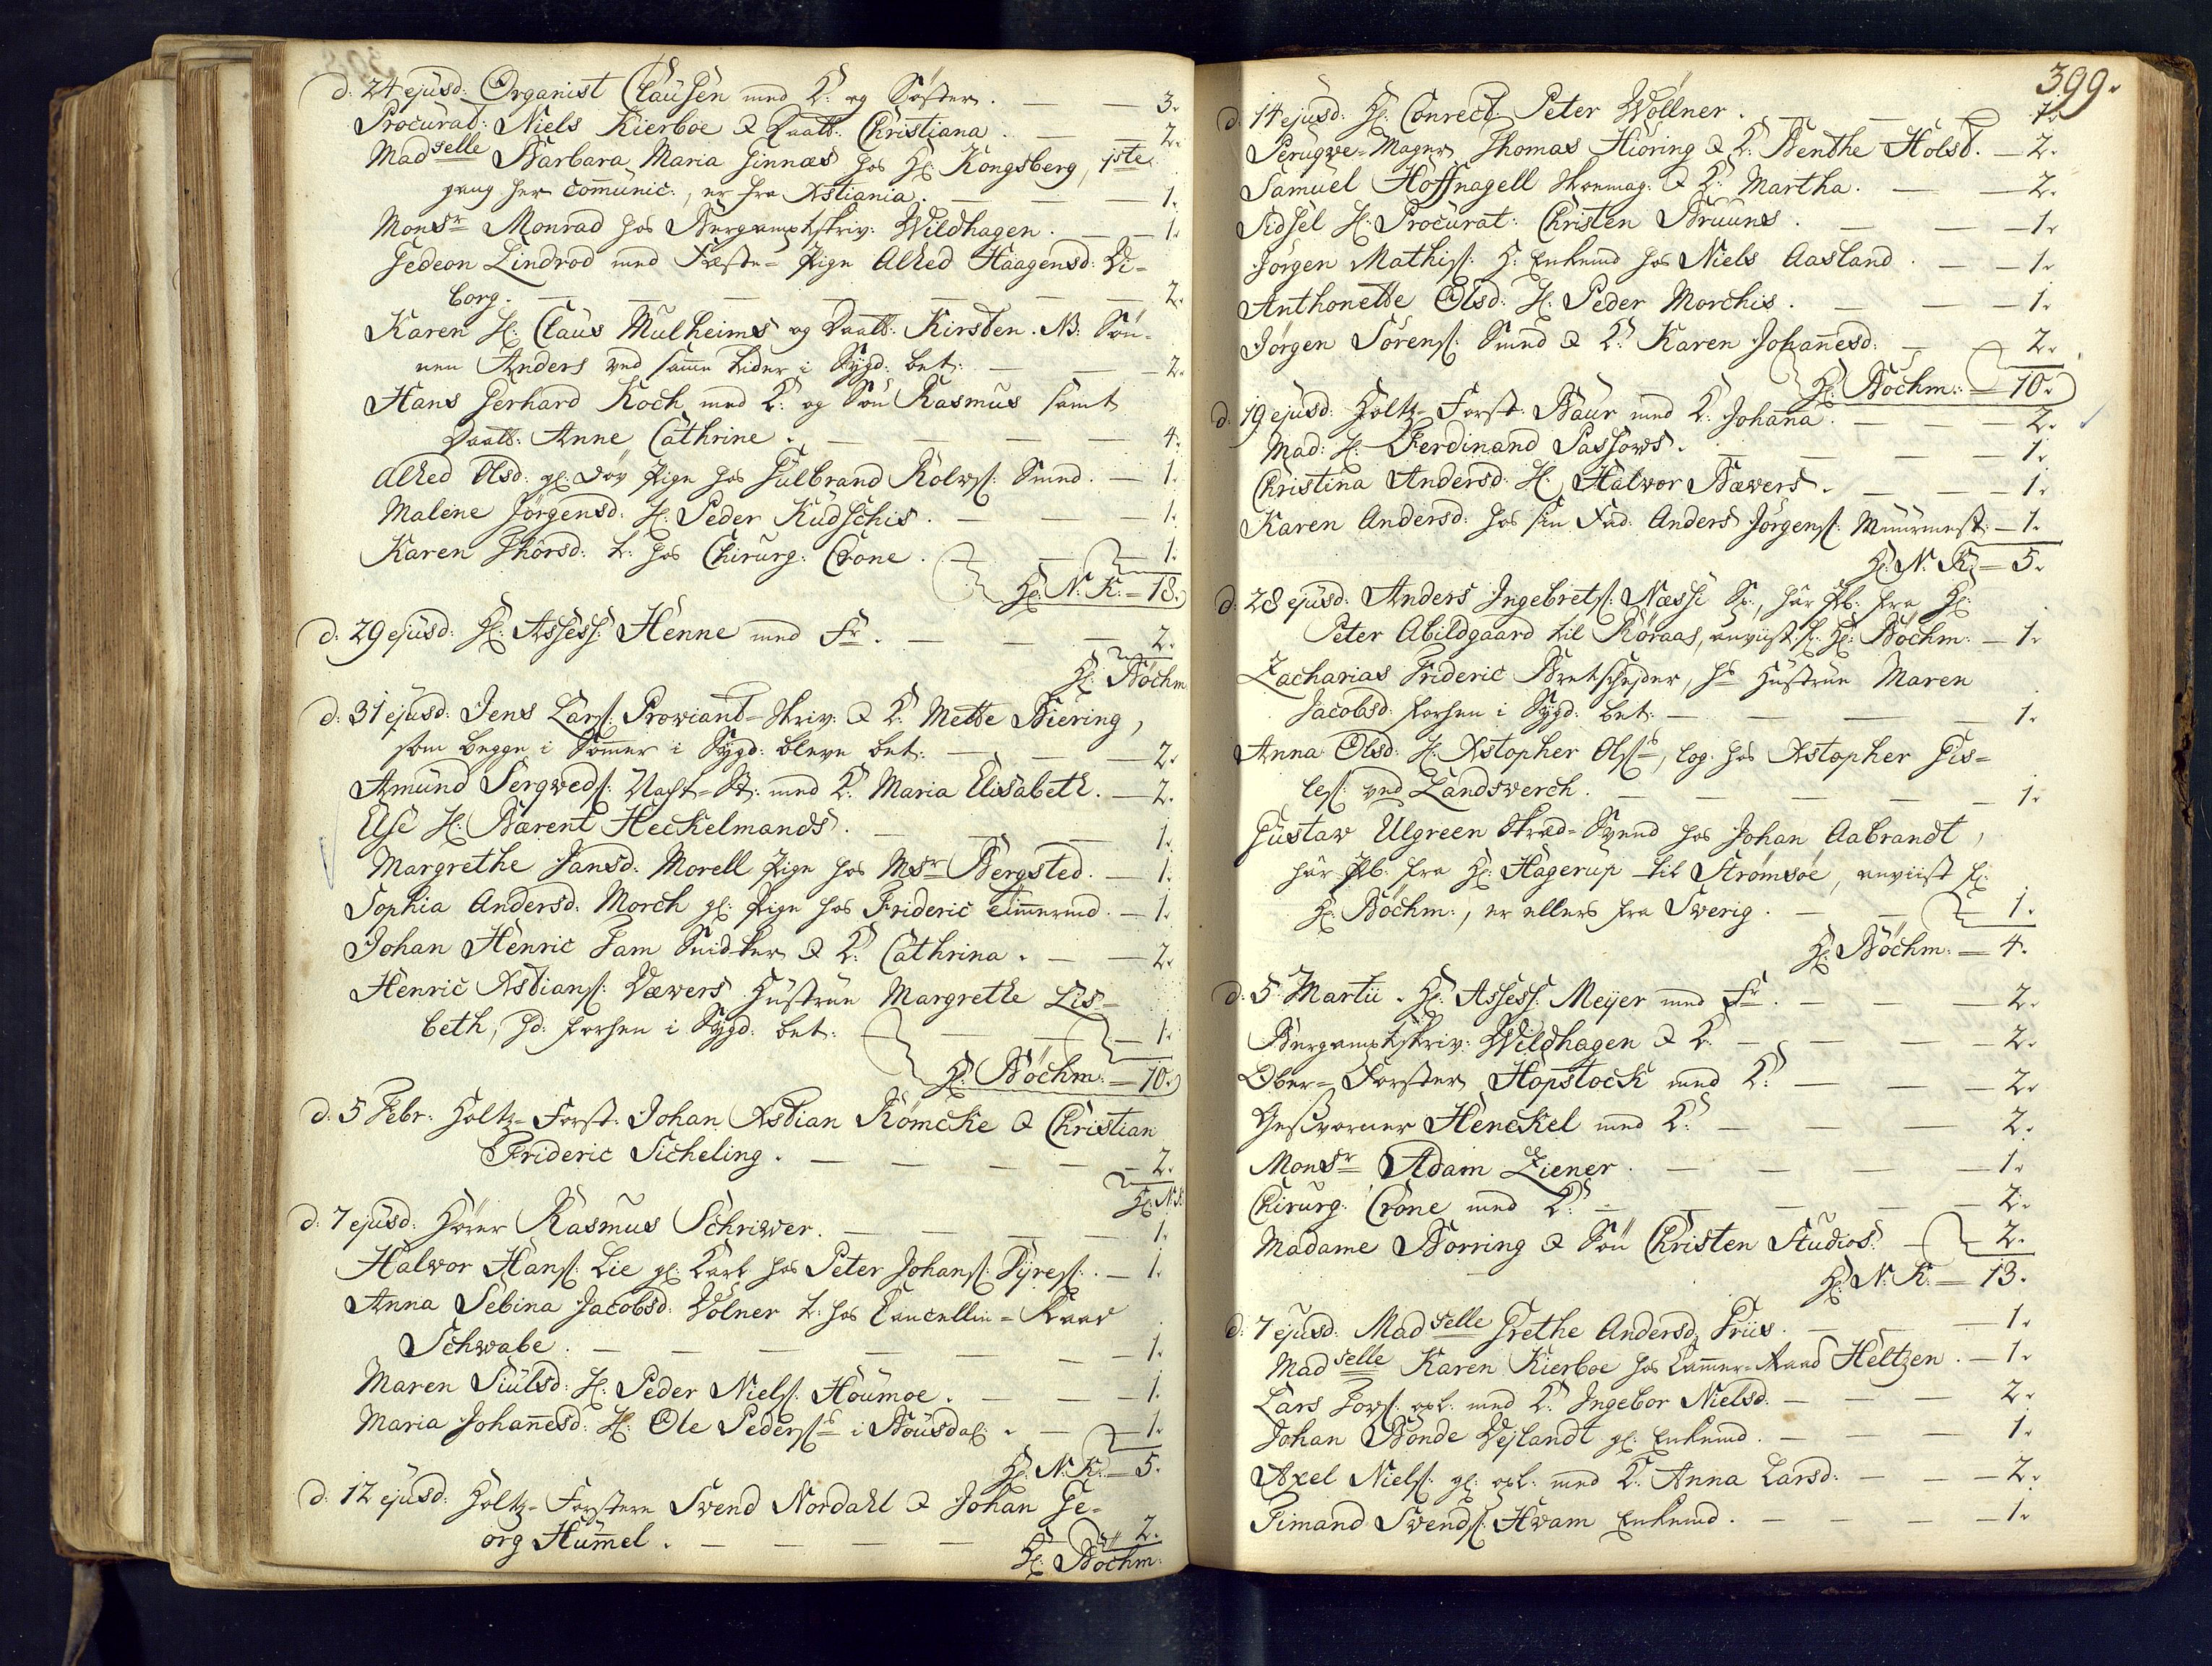 d: 24 ejusd: Organist Clausen med K: og Søster. — — 3.
Procurat: Niels Kierboe & Daatt: Christiana. — 2.
Madselle Barbara Maria Ginnæs hos Hr: Kongsberg, 1ste
gang her com̄unic:, er fra Xstiania. — — — 1.
Monsr Monrad hos Bergamptskriv: Wildhagen. — — 1.
Gedeon Lindrod med Fæste-Pige Alhed Haagensd: Vi-
borg. — — — — — — — 2.
Karen H: Claus Mulheims og Daatt: Kirsten. NB: Søn-
nen Anders ved sam̄e tider i Sygd: bet: — — — 2.
Hans Gerhard Koch med K: og Søn Rasmus samt
Daatt: Anne Cathrine. — — — — 4.
Alhed Olsd: gl: Døv Pige hos Gulbrand Rolws: Smed. — 1.
Malene Jörgensd: H: Peder Kudschis. — — — 1.
Karen Thorsd: t: hos Chirurg: Crone. — — 1.
Hr: N: K: = 18.
d: 29 ejusd: Hr: Assess: Henne med Fr. — — — 2.
Hr: Böchm
d: 31 ejusd: Jens Lars: Proviant-skriv: & K: Mette Biering,
som begge i Som̄er i Sygd: bleve bet: — — — 2.
Amund Sergweds: Nagt-St: med K: Maria Elisabeth. — 2.
Else H: Barent Heckelmands. — — — 1.
Margrethe Jansd: Morell Pige hos Msr Bergsted. — 1.
Sophia Andersd: Morch gl: Pige hos Frideric Tim̄ermd. — 1.
Johan Henric Fam Snidker & K: Cathrina. — — 2.
Henric Xstians: Vævers Hustrue Margrethe Lis-
beth, Hd: forhen i Sygd: bet: — — — 1.
Hr: Böchm: = 10.
d: 5 Febr: Holtz-Forst: Johan Xstian Römcke & Christian
Frideric Sicheling. — — — — — 2.
Hr: N: K:
d: 7 ejusd: Hörer Rasmus Schriwer. — — — 1.
Halvor Hans: Lie gl: Karl hos Peter Johans: Dyres:. — 1.
Anna Sebina Jacobsd: Völner t: hos Cancellie-Raad
Schwabe. — — — — — — 1.
Maren Siulsd: H: Peder Niels: Houmoe. — — 1.
Maria Johan̄esd: H: Ole Peders: i — 1.
Hr: N: K: = 5.
d: 12 ejusd: Holtz-Forstere Svend Nordahl & Johan Ge-
org Hum̄el. — — — — 2.
Hr: Böchm:
399.
d: 14 ejusd: Hr: Conrect Peter Wöllner. — — — 1.
Peruqve-Mager Thomas Hiöring & K: Benthe Holst. — 2.
Samuel Hoffnagell Skomag: & K: Martha. — — 2.
Sidsel H: Procurat: Christen Bruuns. — — — 1.
Jörgen Mathis: H: Enkemd hos Niels Aasland. — — 1.
Anthonette Olsd: H: Peder Morchis. — — — 1.
Jörgen Sörens: Smed & K: Karen Johan̄esd: — 2.
Hr: Böchm: = 10.
d: 19 ejusd: Holtz-Forst: Baur med K: Johan̄a. — — — 2.
Mad: H: Ferdinand Passows. — — — — 1.
Christina Andersd: H: Halvor Bævers. — — — 1.
Karen Andersd: hos sin Fad: Anders Jörgens: Muurmest: — 1.
Hr: N: K: = 5.
d: 28 ejusd: Anders Ingebrets: Næss St:, har Pb: fra Hr:
Peter Abildgaard til Röraas, anviist Hr: Böchm: — 1.
Zacharias Frideric Bretschejder, hs Hustrue Maren
Jacobsd: forhen i Sygd: bet: — — — — 1.
Anna Olsd: H: Xstopher Ols:, log: hos Xstopher Gis-
les: ved Landsverch. — — — — — 1.
Gustav Ulgreen Skræd-Svend hos Johan Aabrandt,
har Pb: fra Hr: Hagerup til Strömsöe, anviist
Hr: Böchm:, er ellers fra Sverig. — — 1.
Hr: Böchm: = 4.
d: 5 Martii. Hr: Assess: Meyer med Fr. — — — 2.
Bergamptskriv: Wildhagen & K: — — — — 2.
Ober-Forster Hopstock med K: — — — 2.
Geschworner Henckel med K: — — — 2.
Monsr Adam Ziener. — — — — 1.
Chirurg: Crone med K: — — — — 2.
Madame Borring & Søn Christen Studios: — 2.
Hr: N: K: = 13.
d: 7 ejusd: Madselle Grethe Andersd: Friis. — — 1.
Madselle Karen Kierboe hos Cam̄er-Raad Heltzen. — 1.
Lars Tows: opl: med K: Ingebor Nielsd: — — — 2.
Johan Bonde Vejlandt gl: Enkemd. — — — 1.
Axel Niels: gl: opl: med K: Anna Larsd: — — — 2.
Timand Svends: Hvam Enkemd. — — — — 1.